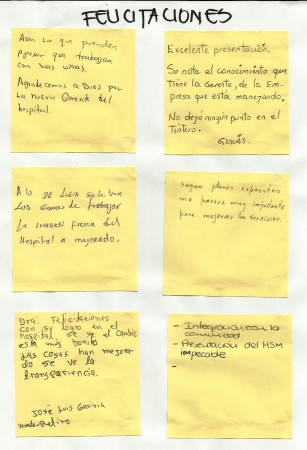 FELICITACIONES
Asen lo que pueden
Apesar que trabajan
con las uñas.
Agradecemos a Dios por
la nueva Gerente del
hospital.
Excelente presentación.
Se nota el conocimiento que
tiene la Gerente, de la Em-
presa que está manejando.
No dejó ningún punto en el
tintero.
Gracias.
A la DR se le ven
Las Ganas de trabajar
La IMAGEN fisica del
Hospital a mejorado.
segun planes expuestos
me parece muy importante
para mejorar los servicios.
Dra: Felicitaciones
con su logro en el
hospital, se ve el cambio
esta más bonito
Las cosas han mejora-
do se ve la
transparencia.
José Luis Gaviria
- Integración con la
comunidad
- Presentación del HSM
impecable
-